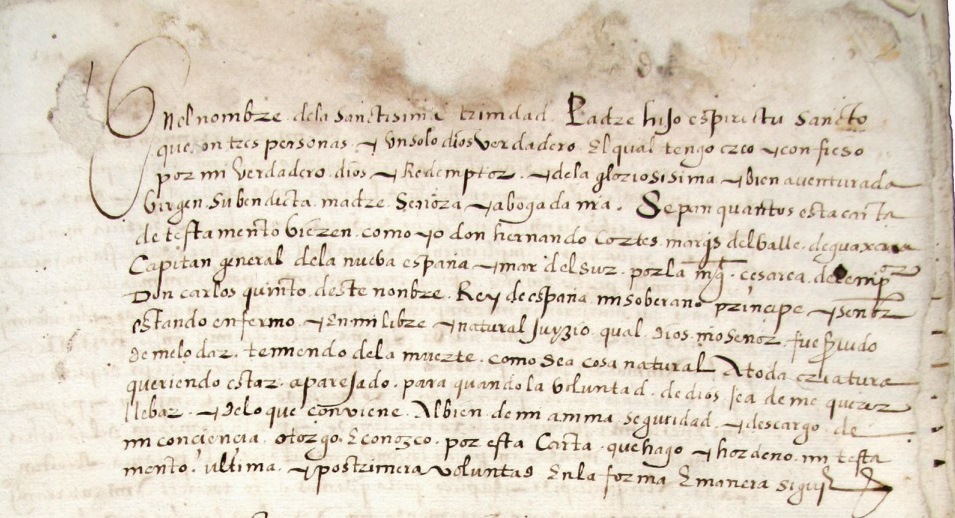 En el nombre de la sanctisima trinidad Padre hijo espiritu sancto
que son tres personas y un solo dios verdadero El qual tengo creo y confieso
por mi verdadero dios y Redemptor y de la gloriosisima y Bien aventurada
Virgen su bendicta madre Señora y abogada nra. Sepan quantos esta carta
de testamento vieren como yo don hernando Cortes marqs del valle de guaxaca
Capitan general de la nueva españa y mar del sur por la mgt. cesarea del empor
Don carlos quinto deste nonbre Rey de españa mi soberano principe y señor
estando enfermo y En mi libre y natural Juyzio qual Dios nro Señor fue servido
de me lo dar temiendo de la muerte como sea cosa natural A toda criatura
queriendo estar aparejado para quando la voluntad de dios sea de me querer
llebar y de lo que conviene Al bien de mi anima seguridad y descargo de
mi conciencia otorgo E conozco por esta Carta que hago y hordeno mi testa
mento ultima y postrimera voluntad En la forma E manera sigute